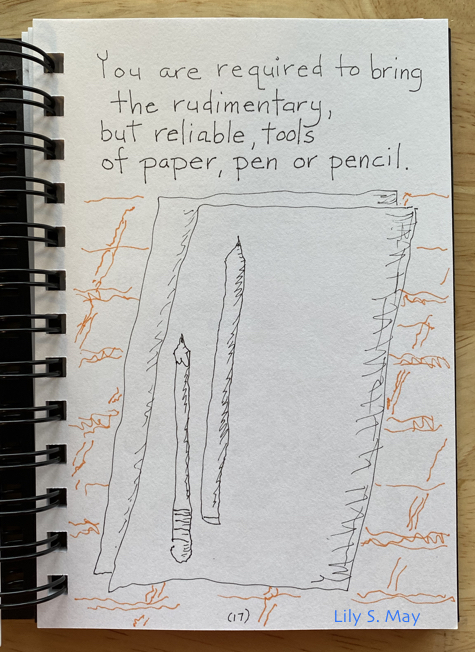 You are required to bring
the rudimentary,
but reliable, tools
of paper, pen or pencil.
(17)
Lily S. May